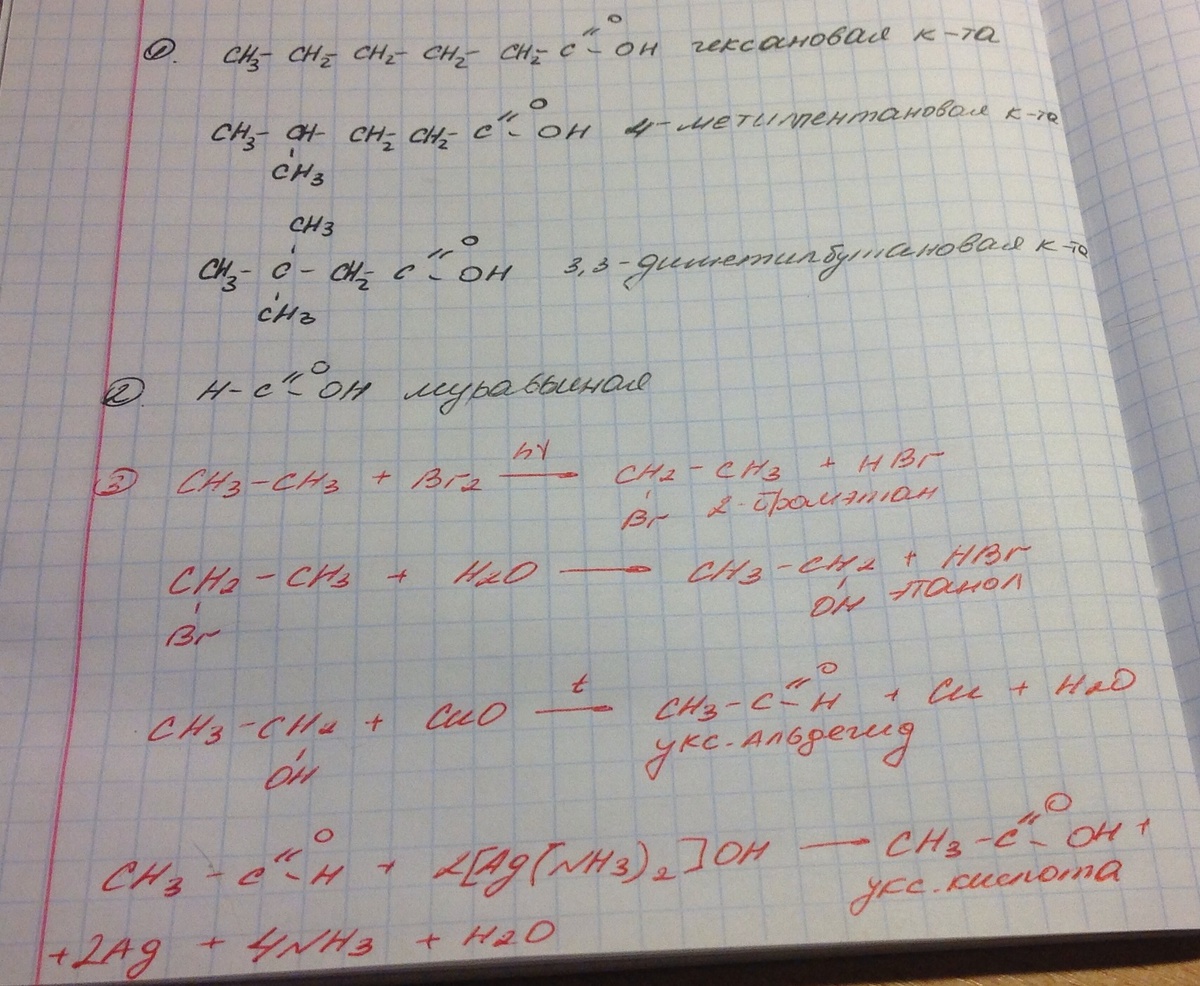 1. CH3- CH2- CH2- CH2- CH2 C =O - OH гексановая к-та
CH3- CH- CH2 CH2- C =O - OH 4-метилпентановая к-та
CH3
CH3
CH3- C - CH2 C =O - OH 3,3-диметилбутановая к-та
CH3
2. H - C =O - OH муравьиная
3 CH3-CH3 + Br2 hγ → CH2 - CH3 + HBr
Br 2-бромэтан
CH2 - CH3 + H2O → CH3 - CH2 + HBr
Br OH этанол
CH3 - CH2 + CuO t → CH3 - C =O - H + Cu + H2O
OH укс. альдегид
CH3 - C =O - H + 2[Ag(NH3)2]OH → CH3 - C =O - OH +
укс. кислота
+2Ag + 4NH3 + H2O